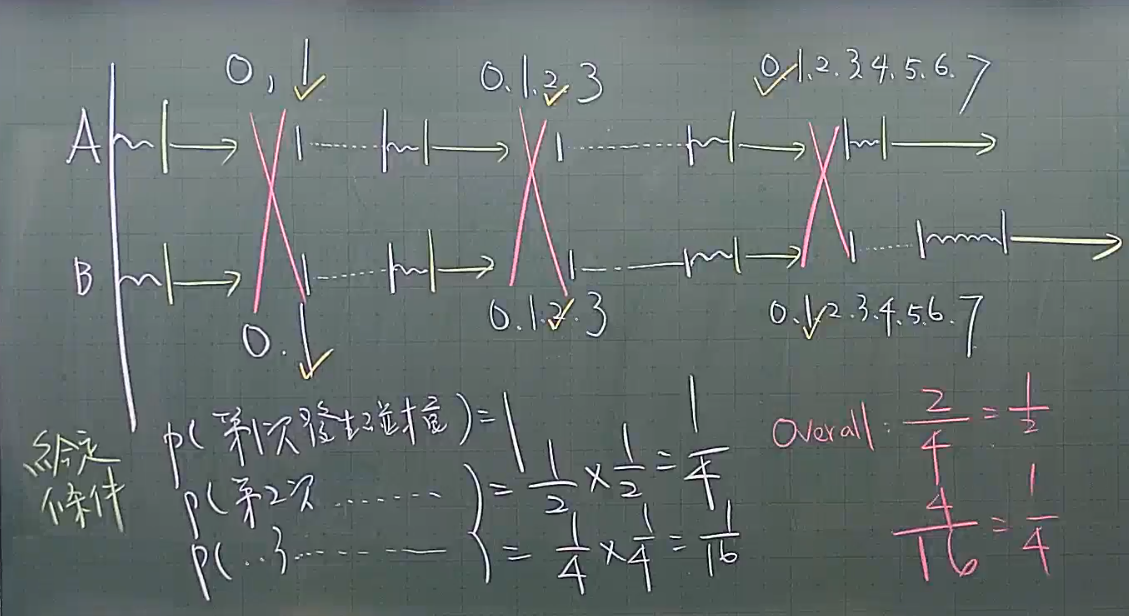 0, 1
0.1.2.3
0.1.2.3.4.5.6.7
A
B
0.1
0.1.2.3
0.1.2.3.4.5.6.7
給定
條件
p(第1次發生碰撞)=1
p(第2次......)=1/2×1/2=1/4
p(..3......)=1/4×1/4=1/16
Overall: 2/4=1/2
4/16=1/4